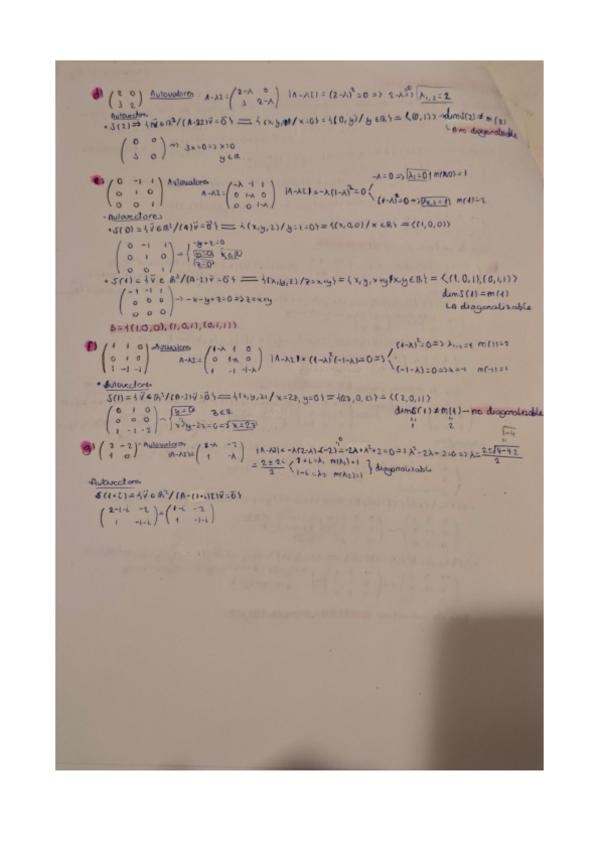 d) (2 0 / 3 2) Autovalores A-λI = (2-λ 0 / 3 2-λ) |A-λI| = (2-λ)² = 0 => 2-λ=0 => λ₁,₂ = 2
Autovectores
• S(2) => {v⃗ ∈ R²/(A-2I)v⃗ = 0⃗} = {(x,y)/x=0} = {(0,y)/y∈R} = <(0,1)> → dim S(2) ≠ m(2)
↳ A no diagonalizable
(0 0 / 3 0) => 3x=0 => x=0
y∈R
e) (0 -1 1 / 0 1 0 / 0 0 1) Autovalores A-λI = (-λ -1 1 / 0 1-λ 0 / 0 0 1-λ) |A-λI| = -λ(1-λ)² = 0
-λ=0 => λ₁=0 m(0)=1
(1-λ)²=0 => λ₂,₃=1 m(1)=2
• Autovectores
• S(0) = {v⃗ ∈ R³/(A)v⃗ = 0⃗} = {(x,y,z)/y=z=0} = {(x,0,0)/x∈R} = <(1,0,0)>
(0 -1 1 / 0 1 0 / 0 0 1) → -y+z=0
y=0 x∈R
z=0
• S(1) = {v⃗ ∈ R³/(A-I)v⃗ = 0⃗} = {(x,y,z)/z=x+y} = {x,y,x+y/x,y∈R} = <(1,0,1),(0,1,1)>
(-1 -1 1 / 0 0 0 / 0 0 0) → -x-y+z=0 => z=x+y
dim S(1) = m(1)
↳ A diagonalizable
B = {(1,0,0),(1,0,1),(0,1,1)}
f) (1 1 0 / 0 1 0 / 1 -1 -1) Autovalores A-λI = (1-λ 1 0 / 0 1-λ 0 / 1 -1 -1-λ) |A-λI| = (1-λ)²(-1-λ) = 0 =>
(1-λ)²=0 => λ₁,₂=1 m(1)=2
(-1-λ)=0 => λ=-1 m(-1)=1
• Autovectores
S(1) = {v⃗ ∈ R³/(A-I)v⃗ = 0⃗} = {(x,y,z)/x=2z, y=0} = {(2z,0,z)} = <(2,0,1)>
(0 1 0 / 0 0 0 / 1 -1 -2) → y=0 z∈R
x-y-2z=0 => x=2z
dim S(1) ≠ m(1) → no diagonalizable
1 2
g) (2 -2 / 1 0) Autovalores A-λI = (2-λ -2 / 1 -λ) |A-λI| = -λ(2-λ)-(-2) = -2λ+λ²+2=0 => λ²-2λ+2=0 => λ = (2±√(4-4·2))/2
= (2±2i)/2 1+i=λ₁ m(λ₁)=1
1-i=λ₂ m(λ₂)=1 } diagonalizable
• Autovectores
S(1+i) = {v⃗ ∈ R²/(A-(1+i)I)v⃗ = 0⃗}
(2-1-i -2 / 1 -1-i) = (1-i -2 / 1 -1-i)